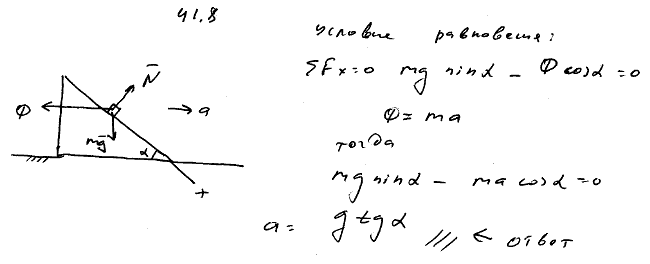 41.8
условие равновесия:
ΣFx=0 mg sinα - Φ cosα = 0
Φ = ma
тогда
mg sinα - ma cosα = 0
a = g tg α /// ← ответ
N̄
Φ
a
mḡ
α
x